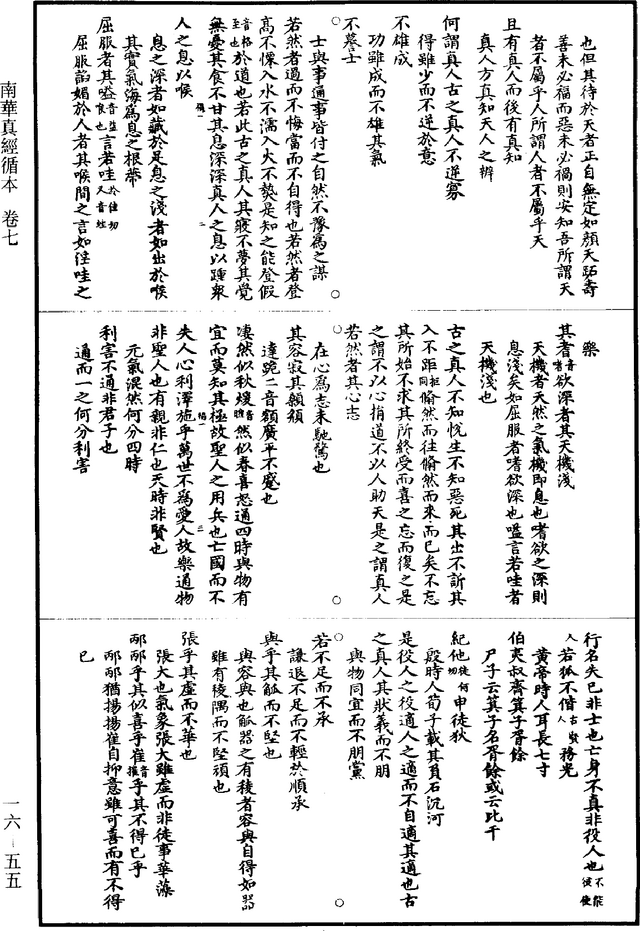 也但其待於天者正自無定如顏夭跖壽
善未必福而惡未必禍則安知吾所謂天
者不屬乎人所謂人者不屬乎天
且有真人而後有真知
真人方真知天人之辨
何謂真人古之真人不逆寡
得雖少而不逆於意
不雄成
功雖成而不雄其氣
不謩士
士與事通事皆付之自然不豫為之謀
若然者過而不悔當而不自得也若然者登
高不慄入水不濡入火不熱是知之能登假
音格至也於道也若此古之真人其寢不夢其覺
無憂其食不甘其息深深真人之息以踵眾
人之息以喉
息之深者如藏於足息之淺者如出於喉
其實氣海為息之根蒂
屈服者其嗌音益喉也言若哇於佳切又音娃
屈服諂媚於人者其喉間之言如徑哇之
樂
其耆音嗜欲深者其天機淺
天機者天然之氣機即息也嗜欲之深則
息淺矣如屈服者嗜欲深也嗌言若哇者
天機淺也
古之真人不知悅生不知惡死其出不訢其
入不距拒同翛然而往翛然而來而已矣不忘
其所始不求其所終受而喜之忘而復之是
之謂不以心捐道不以人助天是之謂真人
若然者其心志
在心為志未馳騖也
其容寂其顙頯
達跪二音額廣平不蹙也
淒然似秋煖音暄然似春喜怒通四時與物有
宜而莫知其極故聖人之用兵也亡國而不
失人心利澤施乎萬世不為愛人故樂通物
非聖人也有親非仁也天時非賢也
元氣混然何分四時
利害不通非君子也
通而一之何分利害
行名失已非士也亡身不真非役人也不能役使
人若狐不偕古賢人務光
黃帝時人耳長七寸
伯夷叔齊箕子胥餘
尸子云箕子名胥餘或云比干
紀他徒何切申徒狄
殷時人荀子載其負石沉河
是役人之役適人之適而不自適其適也古
之真人其狀義而不朋
與物同宜而不朋黨
若不足而不承
謙退不足而不輕於順承
與乎其觚而不堅也
與容與也觚器之有稜者容與自得如器
雖有稜隅而不堅頑也
張乎其虛而不華也
張大也氣象張大雖虛而非徒事華藻
邴邴乎其似喜乎崔音摧乎其不得已乎
邴邴猶揚揚崔自抑意雖可喜而有不得
已
南華真經循本 卷七
一六-五五